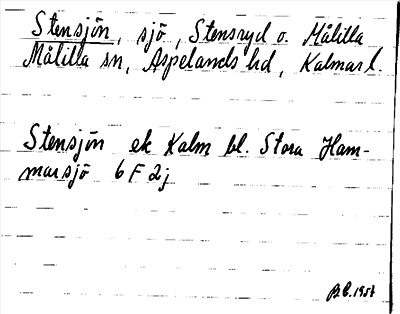 Stensjön, sjö, Stensryd o. Målilla
Målilla sn, Aspelands hd, Kalmar l.
Stensjön ek Kalm bl. Stora Ham-
marsjö 6 F 2j